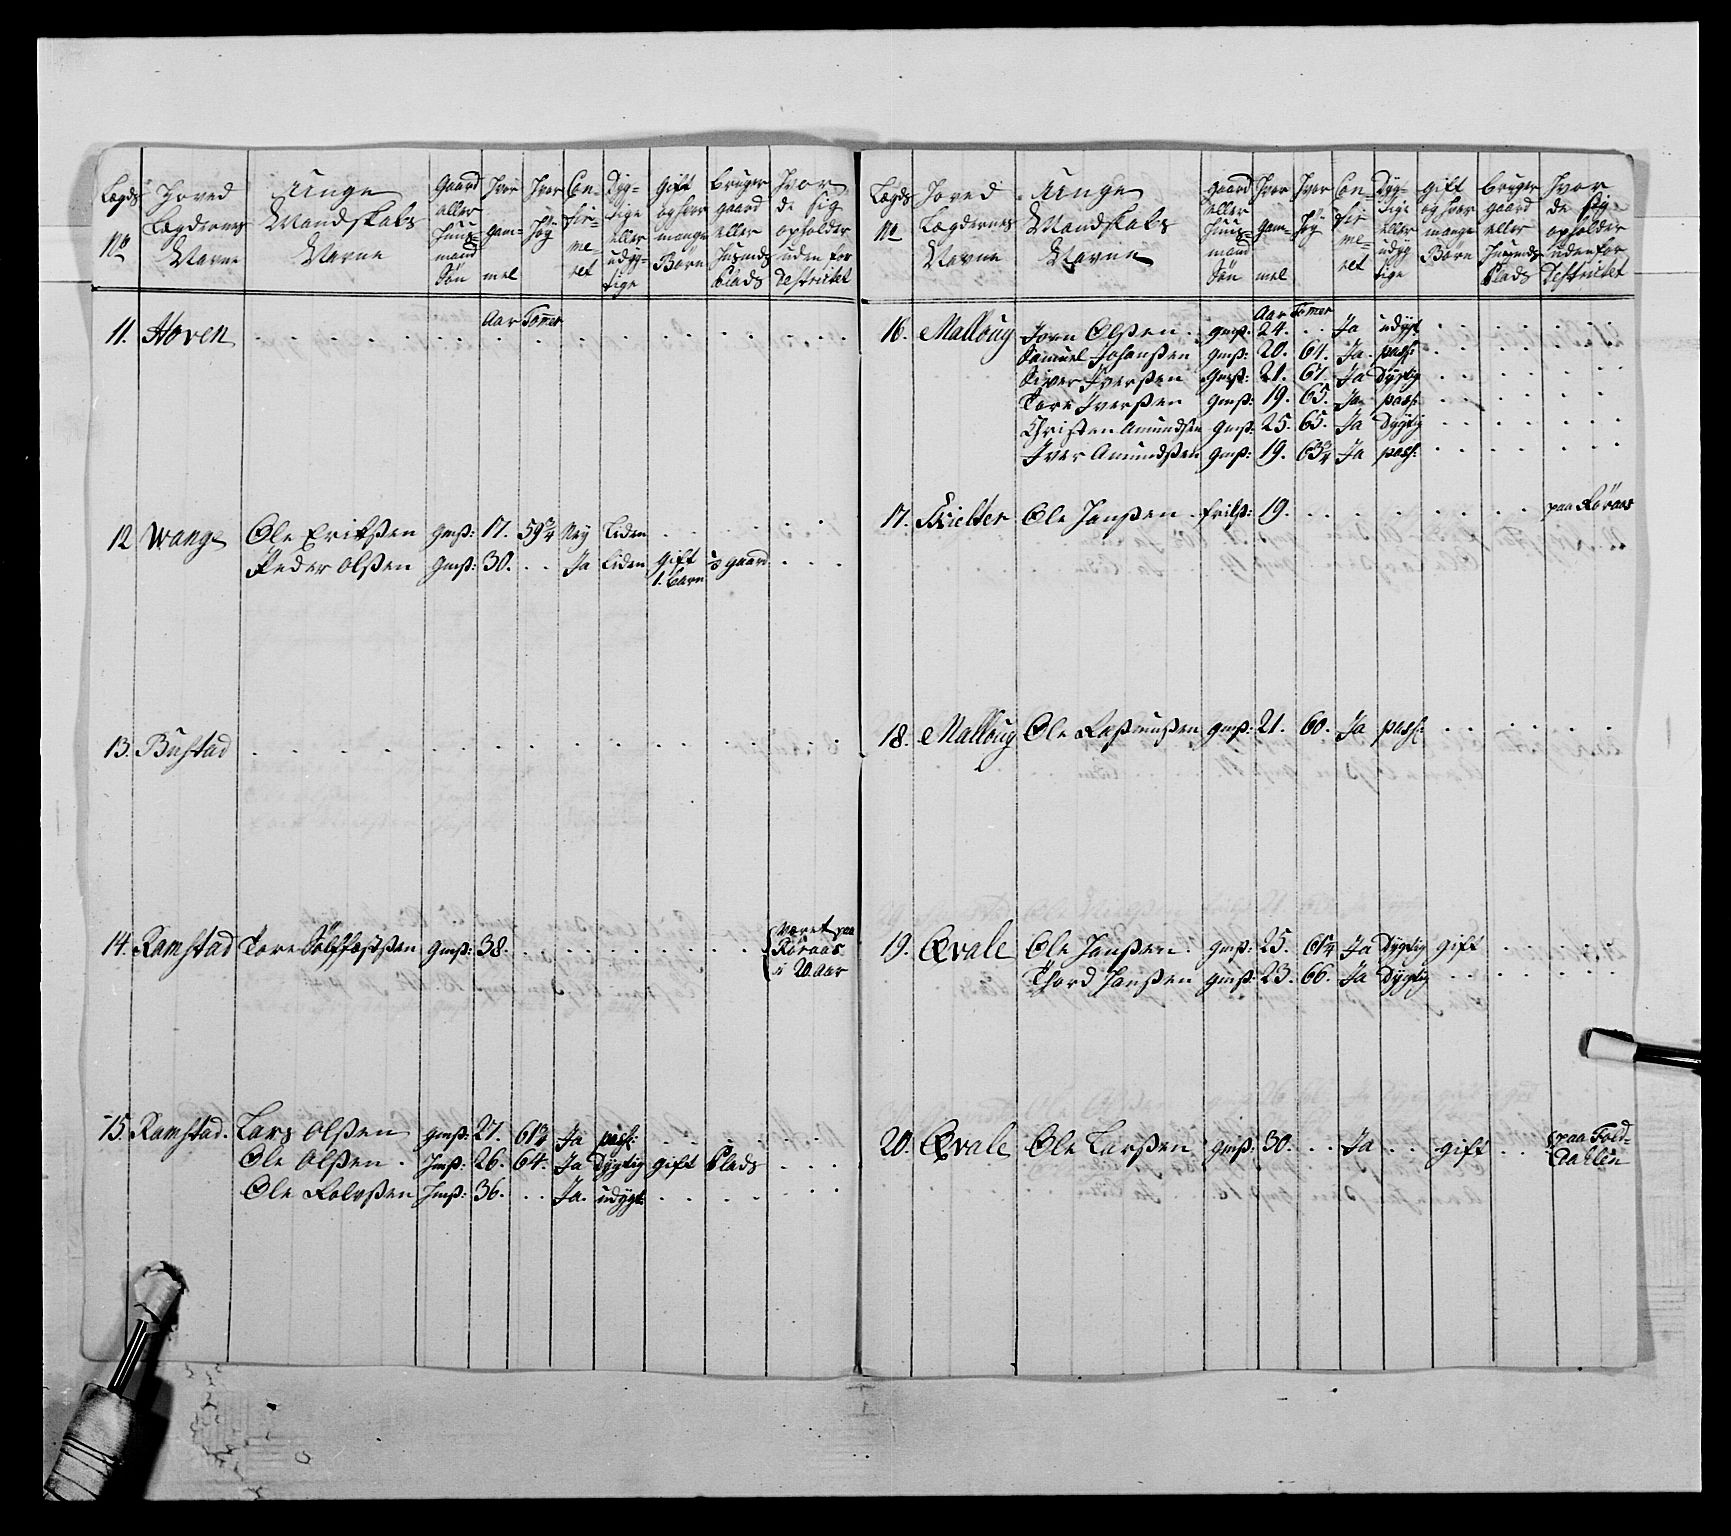 Lægds No | Hoved Lægdernes Navne | Unge Mandskabs Navne | Gaard eller Huusmand Søn | Hvor gammel | Hvor Høy | Confirmeret | Dygtige eller udygtige | Gift og hvor mange Børn | bruger gaard eller Husmds Plads | Hvor de sig opholder uden for Destrictet
Aar Tomer
11. Hoven
12 Wang Ole Erikßen gmß: 17. 59¾ Ney Liden
Peder Olßen gmß: 30. Ja Liden gift 1. barn gaard
13. Bustad
14. Ramstad Tore gmß: 38. været paa Röraas i 20 Aar
15. Ramstad. Lars Olßen gmß: 27. 61¾ Ja pass:
Ole Olßen. Hmß: 26. 64. Ja Dygtig gift Plads
Ole Rolvßen Hmß: 36. Ja. udygt
Lægds No | Hoved Lægdernes Navne | Unge Mandskabs Navne | gaard eller Huusmand Søn | Hvor gammel | Hvor høy | Confirmeret | Dygtige eller udygtige | gift og hvor mange Børn | bruger gaard eller Husmds Plads | Hvor de sig opholder uden for Destrictet
Aar Tomer
16. Malloug Joen Olßen. gmß: 24. Ja udygt
Samuel Johanßen gmß: 20. 64. Ja. pass:
Siver Iverßen gmß: 21. 67. Ja Dygtig
Tore Iverßen gmß: 19. 65. Ja pass:
Christen Amundßen gmß: 25. 65. Ja Dygtig
Iver Amundßen gmß: 19. 63¾ Ja pass:
17. Skielter Ole Janßen. 19. paa Röraas
18. Malloug Ole Rasmußen gmß: 21. 60. Ja pass:
19. Qvale Ole Janßen. gmß: 25. Ja Dygtig gift
Thord Janßen gmß: 23. 66. Ja Dygtig
20. Qvale Ole Larßen gmß: 30. Ja gift paa